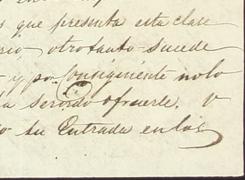 s que presenta esta clase
rio, otro tanto sucede
y por consiguiente no lo
a servido ofrecerle. V
o su Entrada en los